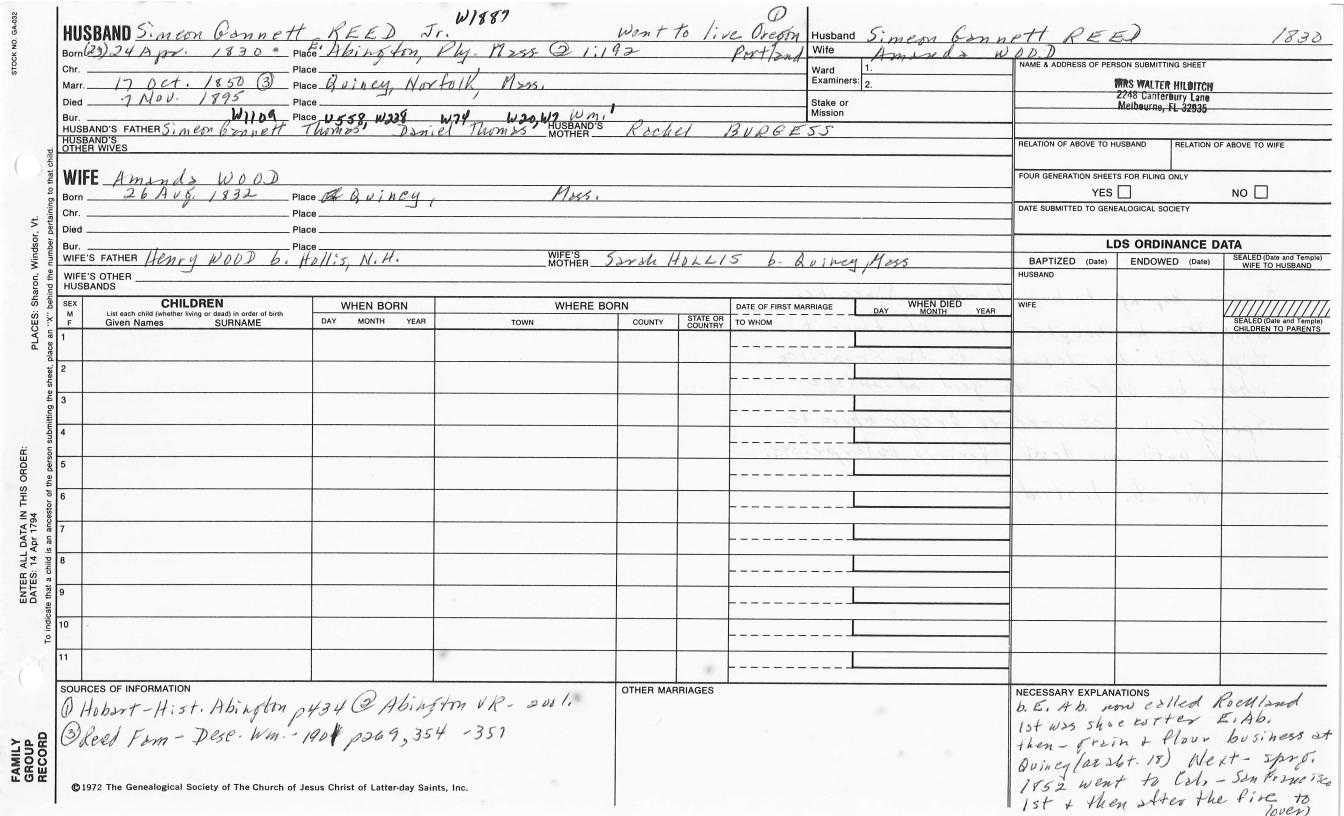 STOCK NO. GA-032
W1887
①
HUSBAND Simeon Gannett REED Jr. went to live Oregon
Portland
Born (23) 24 Apr. 1830 Place E. Abington, Ply. Mass ② 1:192
Chr. Place
Marr. 17 Oct. 1850 ③ Place Quincy, Norfolk, Mass.
Died 7 Nov. 1895 Place
Bur. Place
W1109 W558, W228 W74 W20, W7 Wm.1
HUSBAND'S FATHER Simeon Gannett Thomas, Daniel Thomas, HUSBAND'S MOTHER Rachel BURGESS
HUSBAND'S OTHER WIVES
WIFE Amanda WOOD
Born 26 Aug. 1832 Place Quincy, Mass.
Chr. Place
Died Place
Bur. Place
WIFE'S FATHER Henry WOOD b. Hollis, N.H. WIFE'S MOTHER Sarah HOLLIS b. Quincy, Mass
WIFE'S OTHER HUSBANDS
Husband Simeon Gannett REED 1830
Wife Amanda WOOD
Ward Examiners: 1.
2.
Stake or Mission
NAME & ADDRESS OF PERSON SUBMITTING SHEET
MRS WALTER HILBITCH
2248 Canterbury Lane
Melbourne, FL 32935
RELATION OF ABOVE TO HUSBAND RELATION OF ABOVE TO WIFE
FOUR GENERATION SHEETS FOR FILING ONLY
YES NO
DATE SUBMITTED TO GENEALOGICAL SOCIETY
LDS ORDINANCE DATA
BAPTIZED (Date) ENDOWED (Date) SEALED (Date and Temple) WIFE TO HUSBAND
HUSBAND
WIFE
SEALED (Date and Temple) CHILDREN TO PARENTS
SEX
M
F
CHILDREN
List each child (whether living or dead) in order of birth
Given Names SURNAME
WHEN BORN
DAY MONTH YEAR
WHERE BORN
TOWN COUNTY STATE OR COUNTRY
DATE OF FIRST MARRIAGE
TO WHOM
WHEN DIED
DAY MONTH YEAR
1
2
3
4
5
6
7
8
9
10
11
SOURCES OF INFORMATION
① Hobart-Hist. Abington p434 ② Abington VR- vol 1.
③ Reed Fam - Desc. Wm.- 1901 p269, 354 -357
©1972 The Genealogical Society of The Church of Jesus Christ of Latter-day Saints, Inc.
OTHER MARRIAGES
NECESSARY EXPLANATIONS
b. E. Ab. now called Rockland
1st was shoe cutter E. Ab.
then - Grain & flour business at
Quincy (at abt. 18) Next - sprg.
1852 went to Cal. - San Francisco
1st & then after the fire to
(over)
PLACES: Sharon, Windsor, Vt.
ENTER ALL DATA IN THIS ORDER:
DATES: 14 Apr 1794
To indicate that a child is an ancestor of the person submitting the sheet, place an "X" behind the number pertaining to that child.
FAMILY
GROUP
RECORD